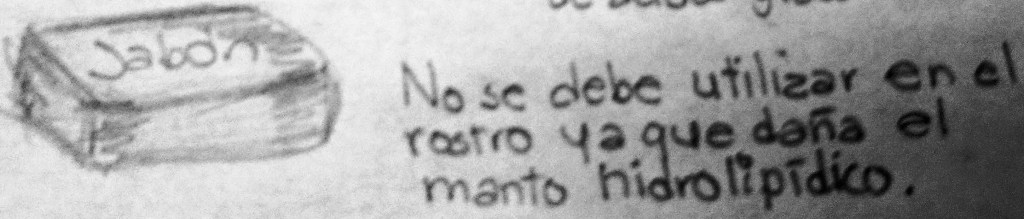 Jabón
No se debe utilizar en el
rostro ya que daña el
manto hidrolipídico.